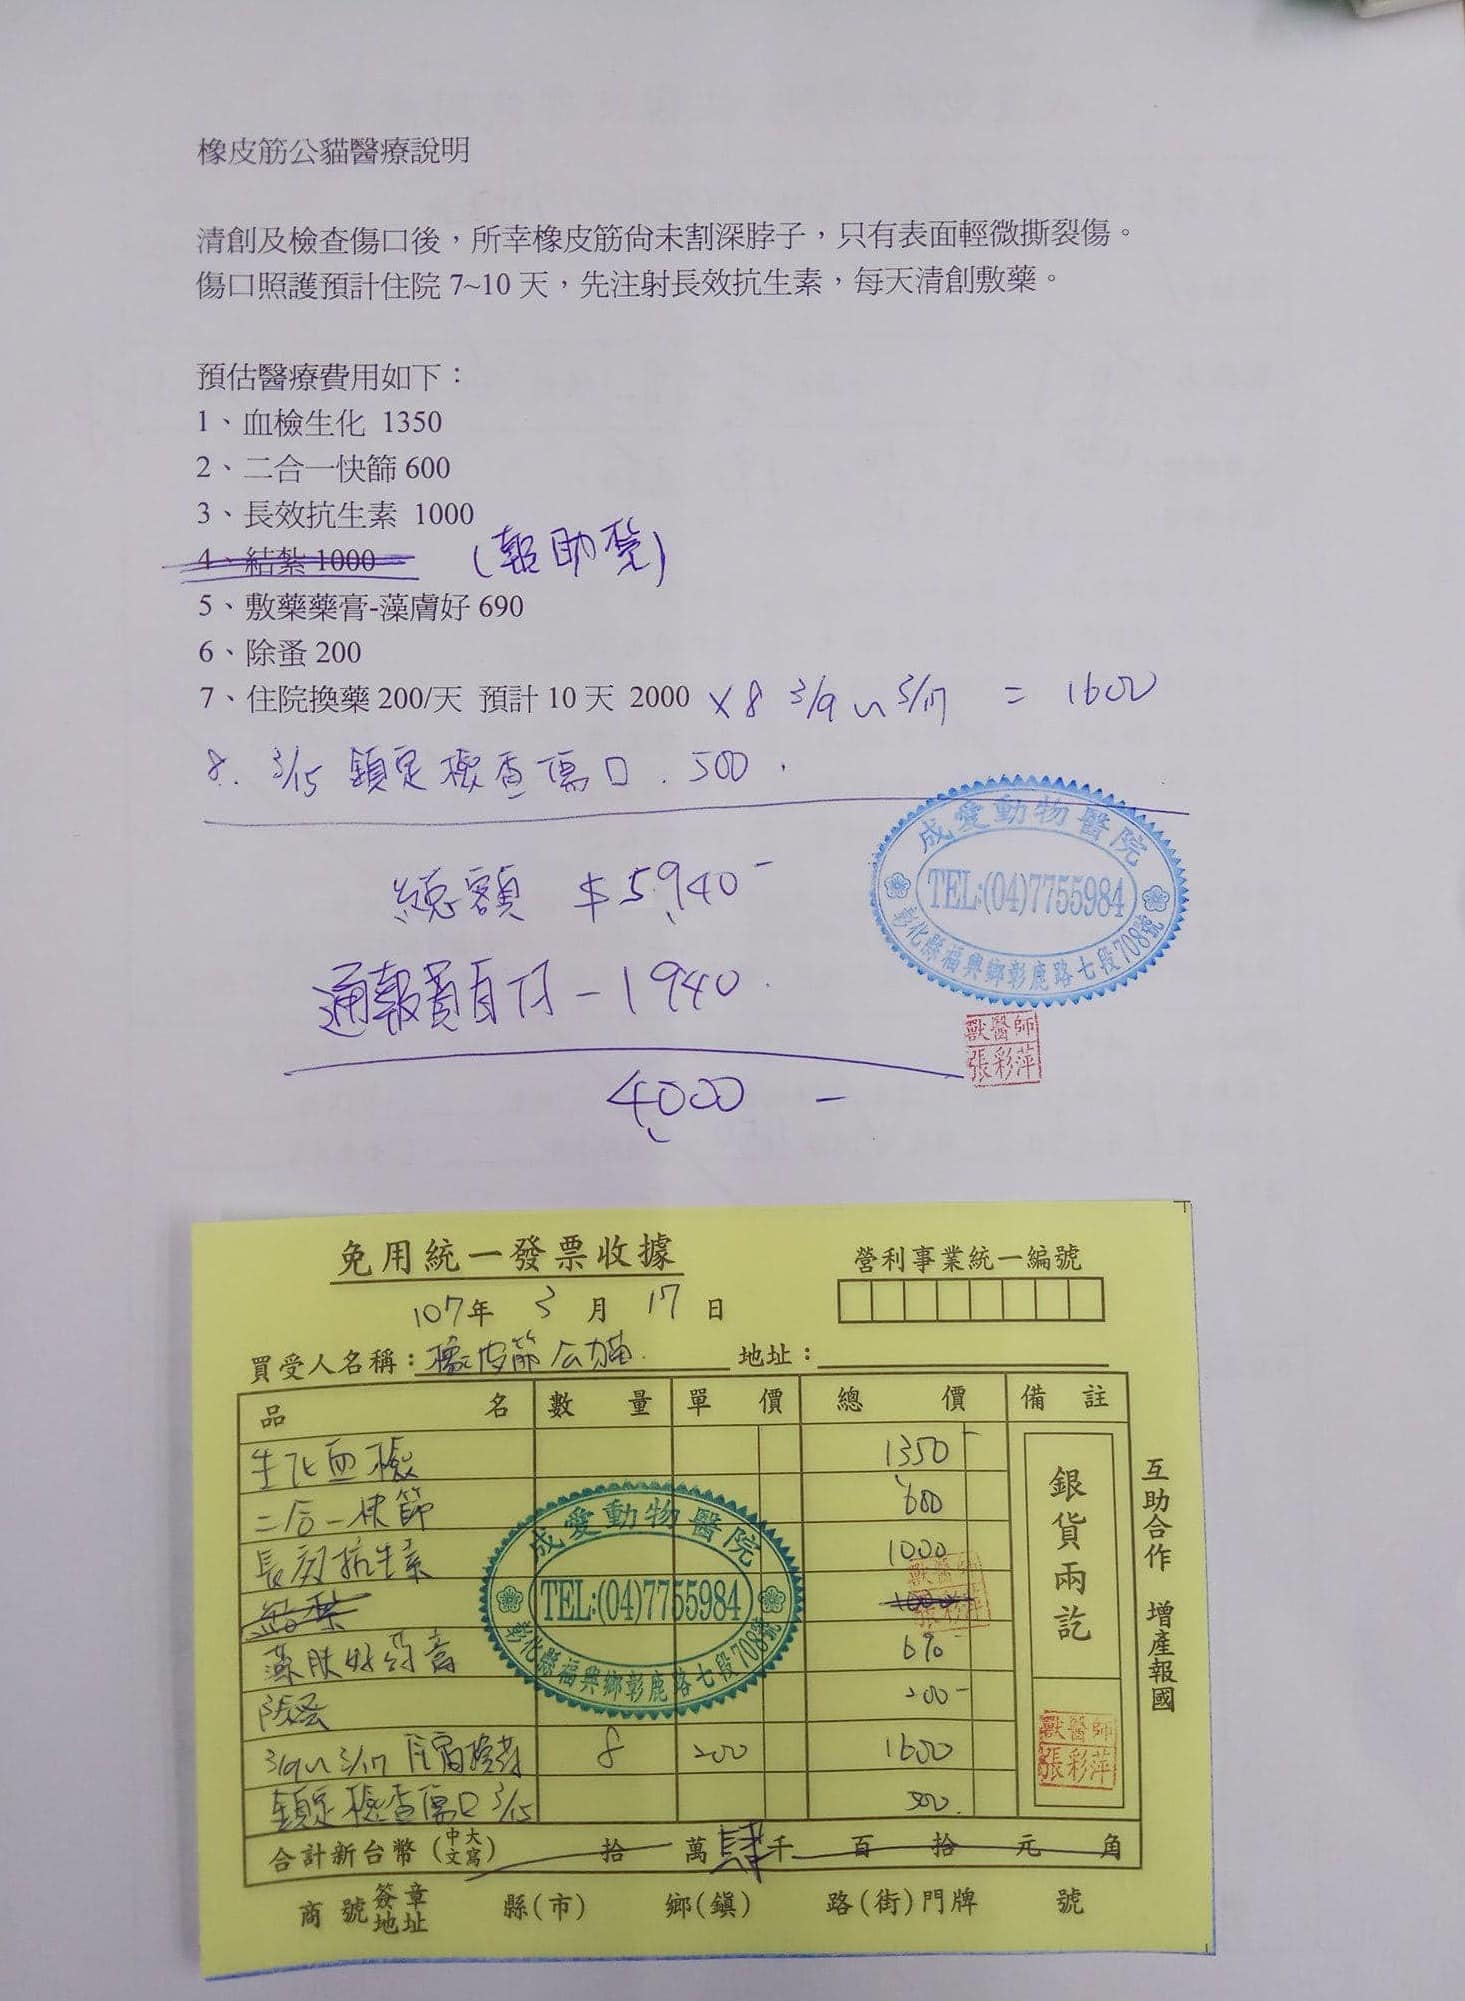 橡皮筋公貓醫療說明
清創及檢查傷口後，所幸橡皮筋尚未割深脖子，只有表面輕微撕裂傷。
傷口照護預計住院 7~10 天，先注射長效抗生素，每天清創敷藥。
預估醫療費用如下：
1、血檢生化 1350
2、二合一快篩 600
3、長效抗生素 1000
4、結紮 1000 (報助紮)
5、敷藥藥膏-藻膚好 690
6、除蚤 200
7、住院換藥 200/天 預計 10 天 2000 ×8 3/9~3/17 = 1600
8. 3/15 鎮定檢查傷口. 500.
總額 $5,940-
成愛動物醫院
TEL:(04)7755984
彰化縣福興鄉彰鹿路七段708號
通報費自付 -1940.
獸醫師
張彩萍
4,000 -
免用統一發票收據
營利事業統一編號
107年 3 月 17 日
買受人名稱：橡皮筋公貓. 地址：
品名 數量 單價 總價 備註
生化血檢 1350-
二合一快篩 600
長效抗生素 1000
結紮 1000
藻膚好药膏 690
除蚤 200-
3/9~3/17 住宿換药 8 200 1600
鎮定檢查傷口 3/15 500.
成愛動物醫院
TEL:(04)7755984
彰化縣福興鄉彰鹿路七段708號
獸醫師
張彩萍
銀貨兩訖
獸醫師
張彩萍
互助合作 增產報國
合計新台幣(中文大寫) 拾 萬 肆千 百 拾 元 角
商號簽章地址 縣(市) 鄉(鎮) 路(街)門牌 號